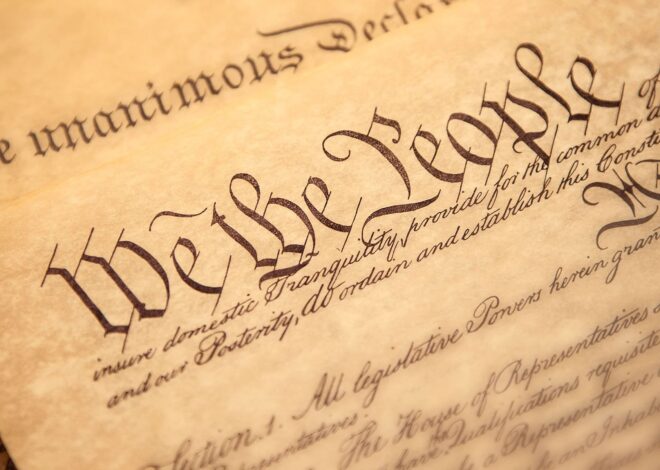 unanimous Decla
We the People of
insure domestic Tranquility, provide for the common
and our Posterity, do ordain and establish this Consti
Section. 1. All legislative Powers herein gran
The House of Representatives
have Qualifications requisite
a Representative
an Inhab